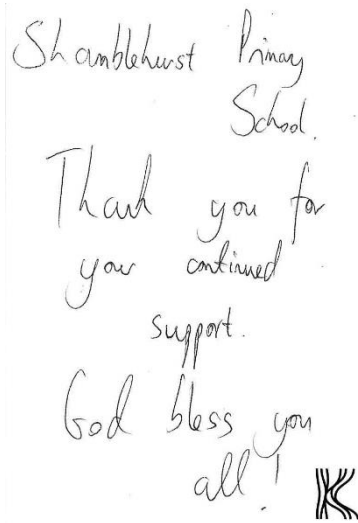 Shamblehurst Primary
School.
Thank you for
your continued
support.
God bless you
all!
K